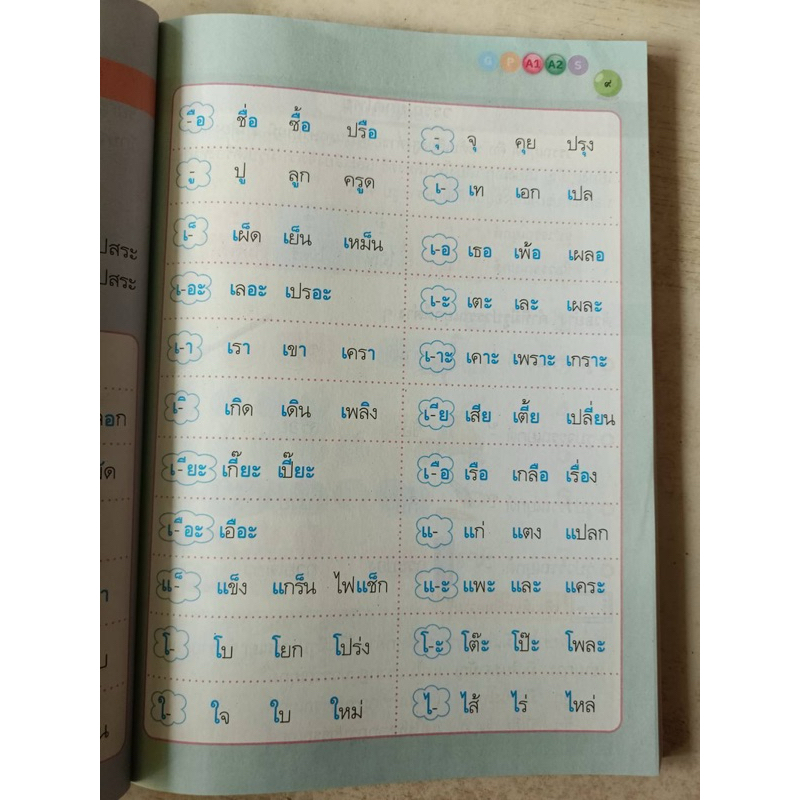 G P A1 A2 S
๙
-ือ ชื่อ ซื้อ ปรือ
-ุ จุ คุย ปรุง
-ู ปู ลูก ครูด
เ- เท เอก เปล
เ-็ เผ็ด เย็น เหม็น
เ-อ เธอ เพ้อ เผลอ
เ-อะ เลอะ เปรอะ
เ-ะ เตะ เละ เผละ
เ-า เรา เขา เครา
เ-าะ เคาะ เพราะ เกราะ
เ-ิ เกิด เดิน เพลิง
เ-ีย เสีย เตี้ย เปลี่ยน
เ-ียะ เกี๊ยะ เปี๊ยะ
เ-ือ เรือ เกลือ เรื่อง
เ-ือะ เอือะ
แ- แก่ แตง แปลก
แ-็ แข็ง แกร็น ไฟแช็ก
แ-ะ แพะ และ แคระ
โ- โบ โยก โปร่ง
โ-ะ โต๊ะ โป๊ะ โพละ
ใ- ใจ ใบ ใหม่
ไ- ไส้ ไร่ ไหล่
ปสระ
ปสระ